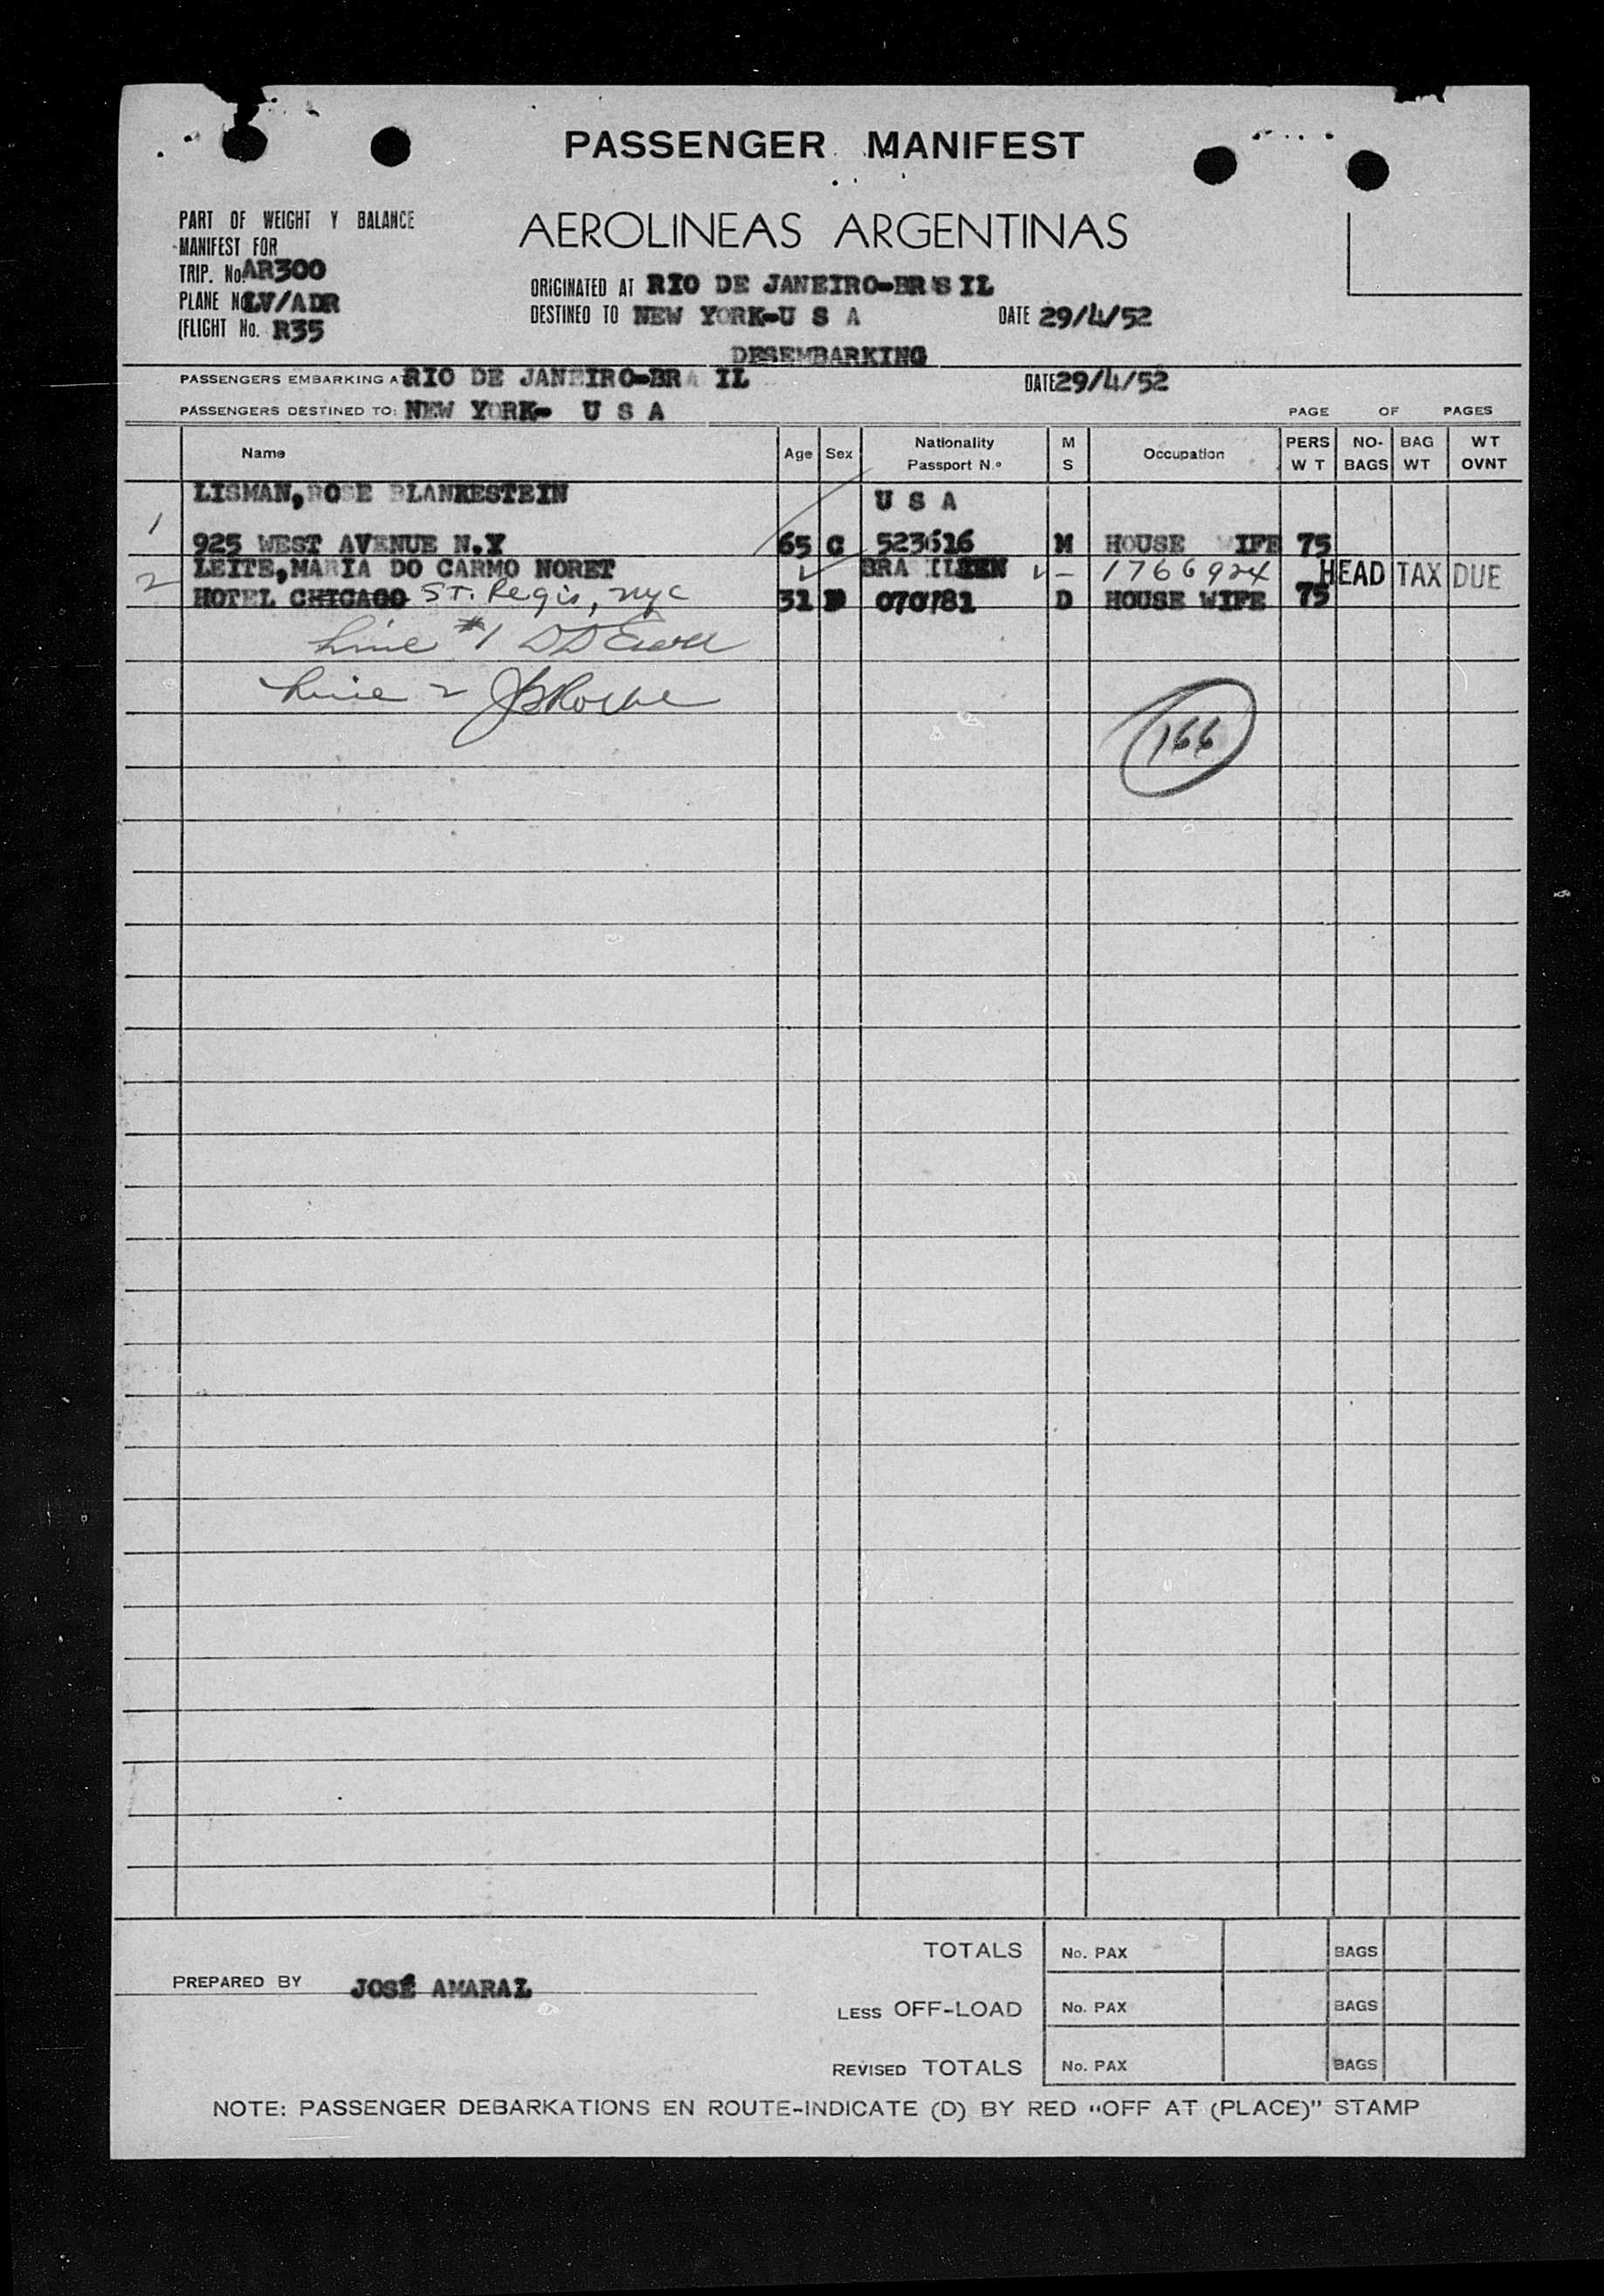 PASSENGER MANIFEST
PART OF WEIGHT Y BALANCE
MANIFEST FOR
TRIP. No. AR300
PLANE No. LV/ADR
(FLIGHT No. R35
AEROLINEAS ARGENTINAS
ORIGINATED AT RIO DE JANEIRO-BRSIL
DESTINED TO NEW YORK-U S A DATE 29/4/52
DESEMBARKING
PASSENGERS EMBARKING AT RIO DE JANEIRO-BRA IL DATE 29/4/52
PASSENGERS DESTINED TO: NEW YORK- U S A PAGE OF PAGES
Name Age Sex Nationality Passport N.º M S Occupation PERS WT NO- BAGS BAG WT WT OVNT
LISMAN, ROSE BLANKESTEIN U S A
1 925 WEST AVENUE N.Y 65 C 523616 M HOUSE WIFE 75
LEITE, MARIA DO CARMO NORET BRA IL 1766924 HEAD TAX DUE
2 HOTEL CHICAGO St. Regis, nyc 31 070781 D HOUSE WIFE 75
Line #1
Line 2
166
TOTALS No. PAX BAGS
PREPARED BY JOSÉ AMARAL
LESS OFF-LOAD No. PAX BAGS
REVISED TOTALS No. PAX BAGS
NOTE: PASSENGER DEBARKATIONS EN ROUTE-INDICATE (D) BY RED "OFF AT (PLACE)" STAMP